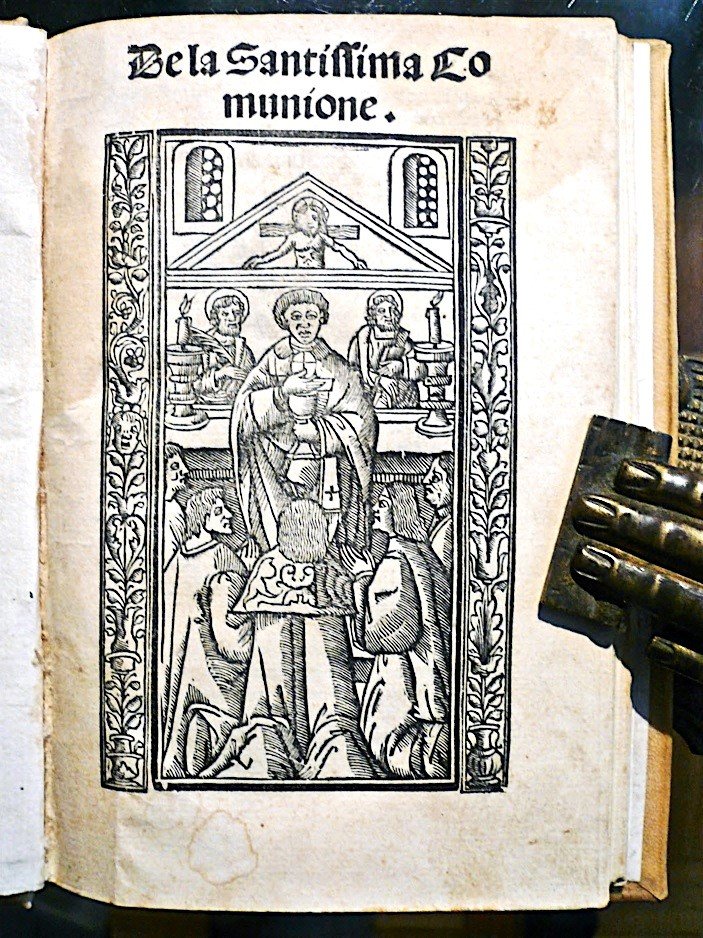 De la Santissima Co
munione.